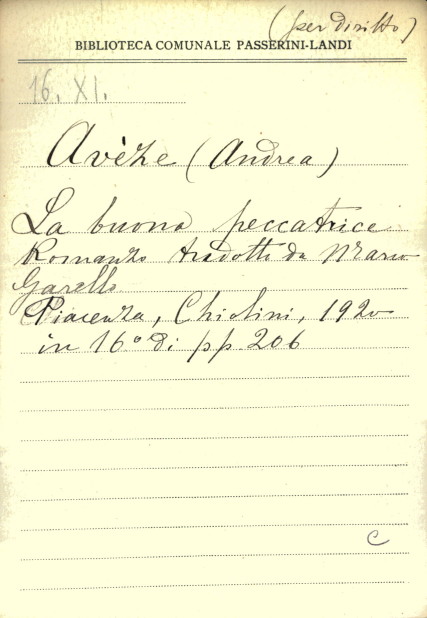 (per diritto)
BIBLIOTECA COMUNALE PASSERINI-LANDI
16. XI.
Avèze (Andrea)
La buona peccatrice
Romanzo tradotto da Mario
Garello
Piacenza, Chiolini, 1920
in 16° di pp 206
C